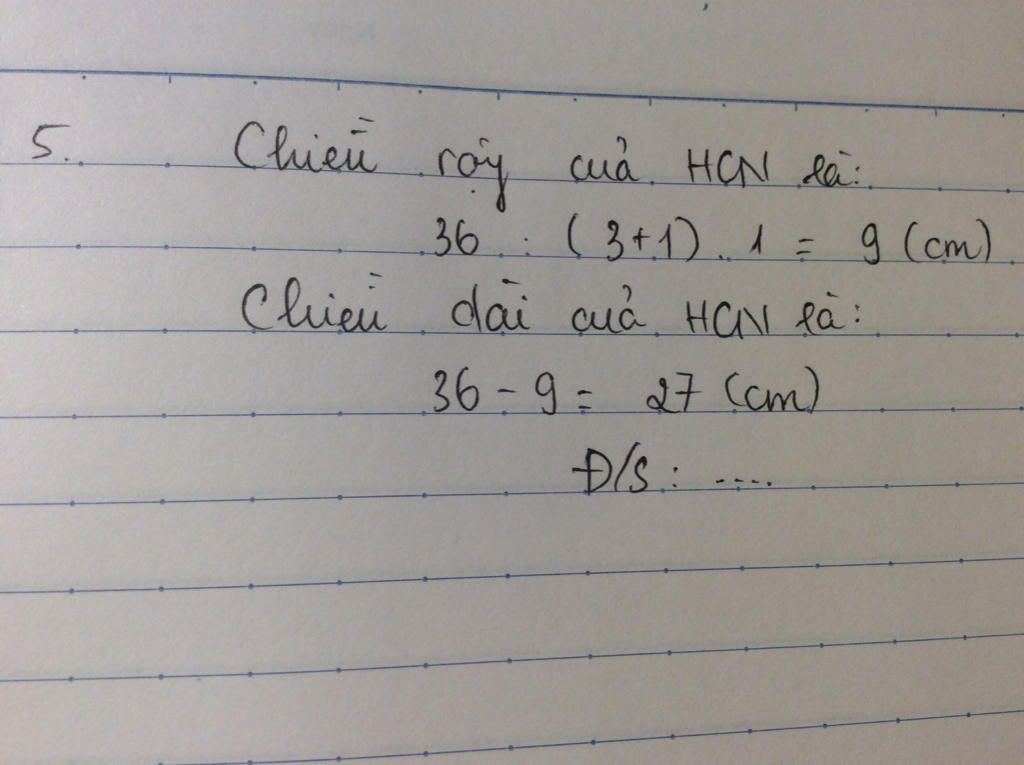 5. Chiều rộng của HCN là:
36 : (3+1) . 1 = 9 (cm)
Chiều dài của HCN là:
36 - 9 = 27 (cm)
Đ/S : ....